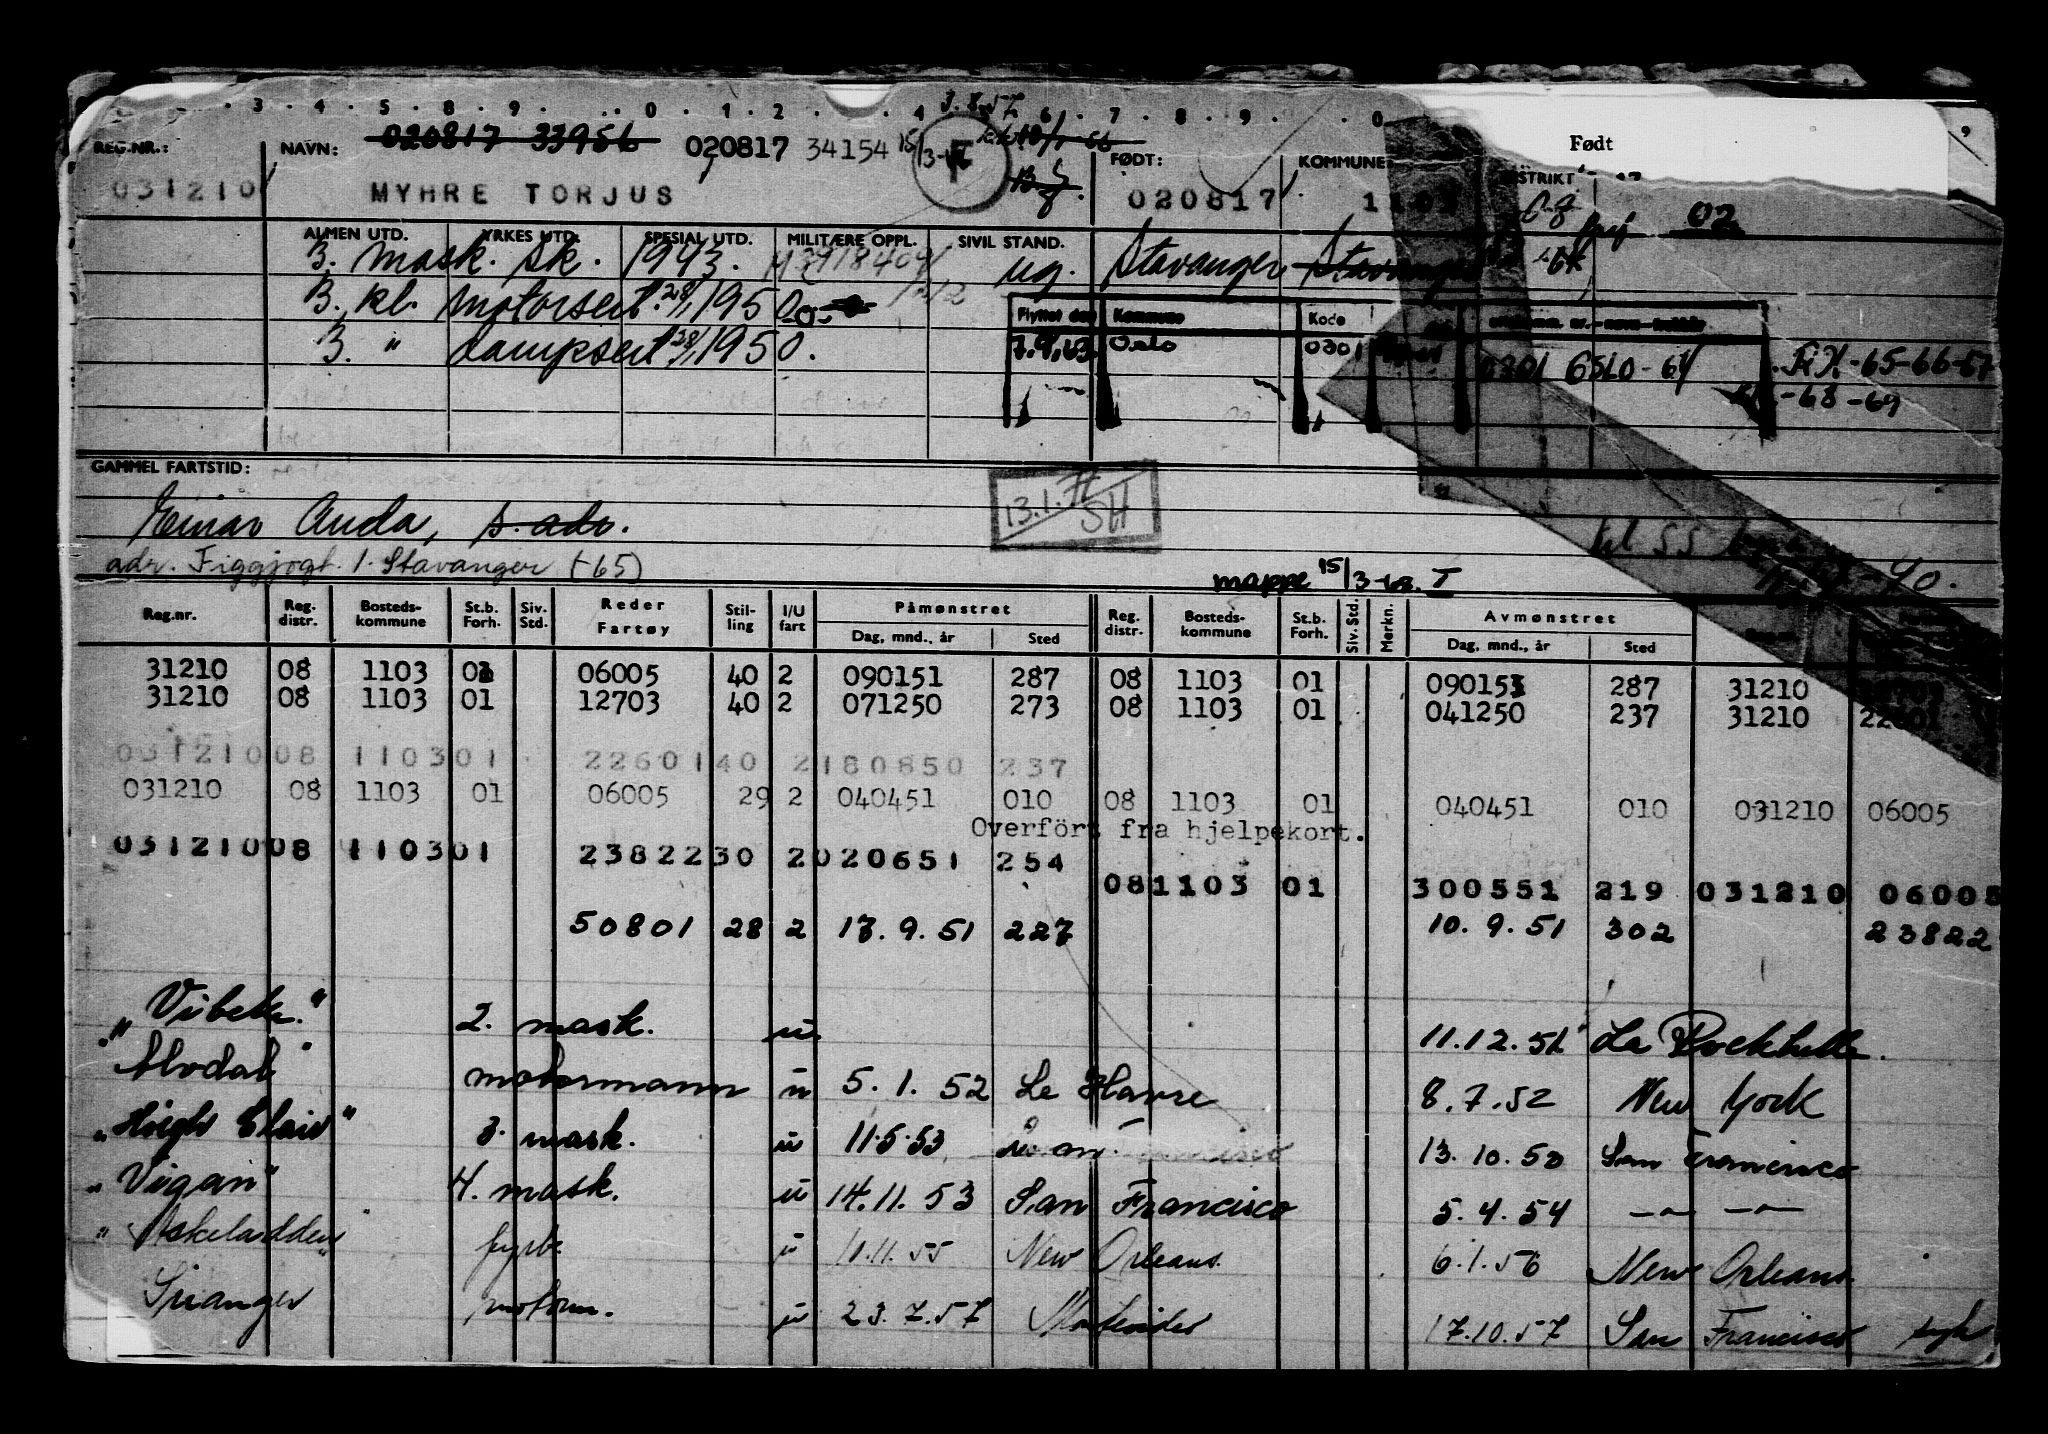 3 . 4 . 5 . 8 . 9 . . . 0 . 1 . 2 . . . 4 3.8.57 6 . 7 . 8 . 9 . . 0 9
REG.NR.: NAVN: 020817 33956 020817 34154 15/3- FØDT: KOMMUNE DISTRIKT Født
031210 MYHRE TORJUS 020817 1103 08 02
ALMEN UTD. YRKES UTD. SPESIAL UTD. MILITÆRE OPPL. SIVIL STAND.
B. mask. sk. 1943. ug. Stavanger Stavanger
B. kl. motorsert. 28/1 1950
B. " dampsert 28/1 1950.
Flyttet den Kommune Kode
7.9.63 Oslo 0301 0301 6510-64 -65-66-67
-68-69
GAMMEL FARTSTID:
13.1.71 SH
Einar Anda, s. adr.
adr. Figgjogt. 1. Stavanger (-65)
mappe 15/3- I
Reg.nr. Reg. distr. Bosteds- kommune St.b. Forh. Siv. Std. Reder Fartøy Stil- ling I/U fart Påmønstret Dag, mnd., år Sted Reg. distr. Bosteds- kommune St.b. Forh. Siv. Std. Merkn. Avmønstret Dag, mnd., år Sted
31210 08 1103 01 06005 40 2 090151 287 08 1103 01 090151 287 31210
31210 08 1103 01 12703 40 2 071250 273 08 1103 01 041250 237 31210 22601
031210 08 1103 01 22601 40 2 180850 237
031210 08 1103 01 06005 29 2 040451 010 08 1103 01 040451 010 031210 06005
Overfört fra hjelpekort.
031210 08 1103 01 23822 30 2 020651 254
08 1103 01 300551 219 031210 06005
50801 28 2 17.9.51 227 10.9.51 302 23822
"Vibeke." 2. mask. u 11.12.51 La
Alvdal" motormann u 5.1.52 Le Havre 8.7.52 New York
"High " 3. mask. u 11.5.53 13.10.53 San Francisco
"Vigan" 4. mask. u 14.11.53 San Francisco 5.4.54 —"— —"—
"Askeladden" fyrb. u 10.11.55 New Orleans. 6.1.56 New Orleans.
Sianger motorm. u 23.7.57 Montevideo 17.10.57 San Francisco syk